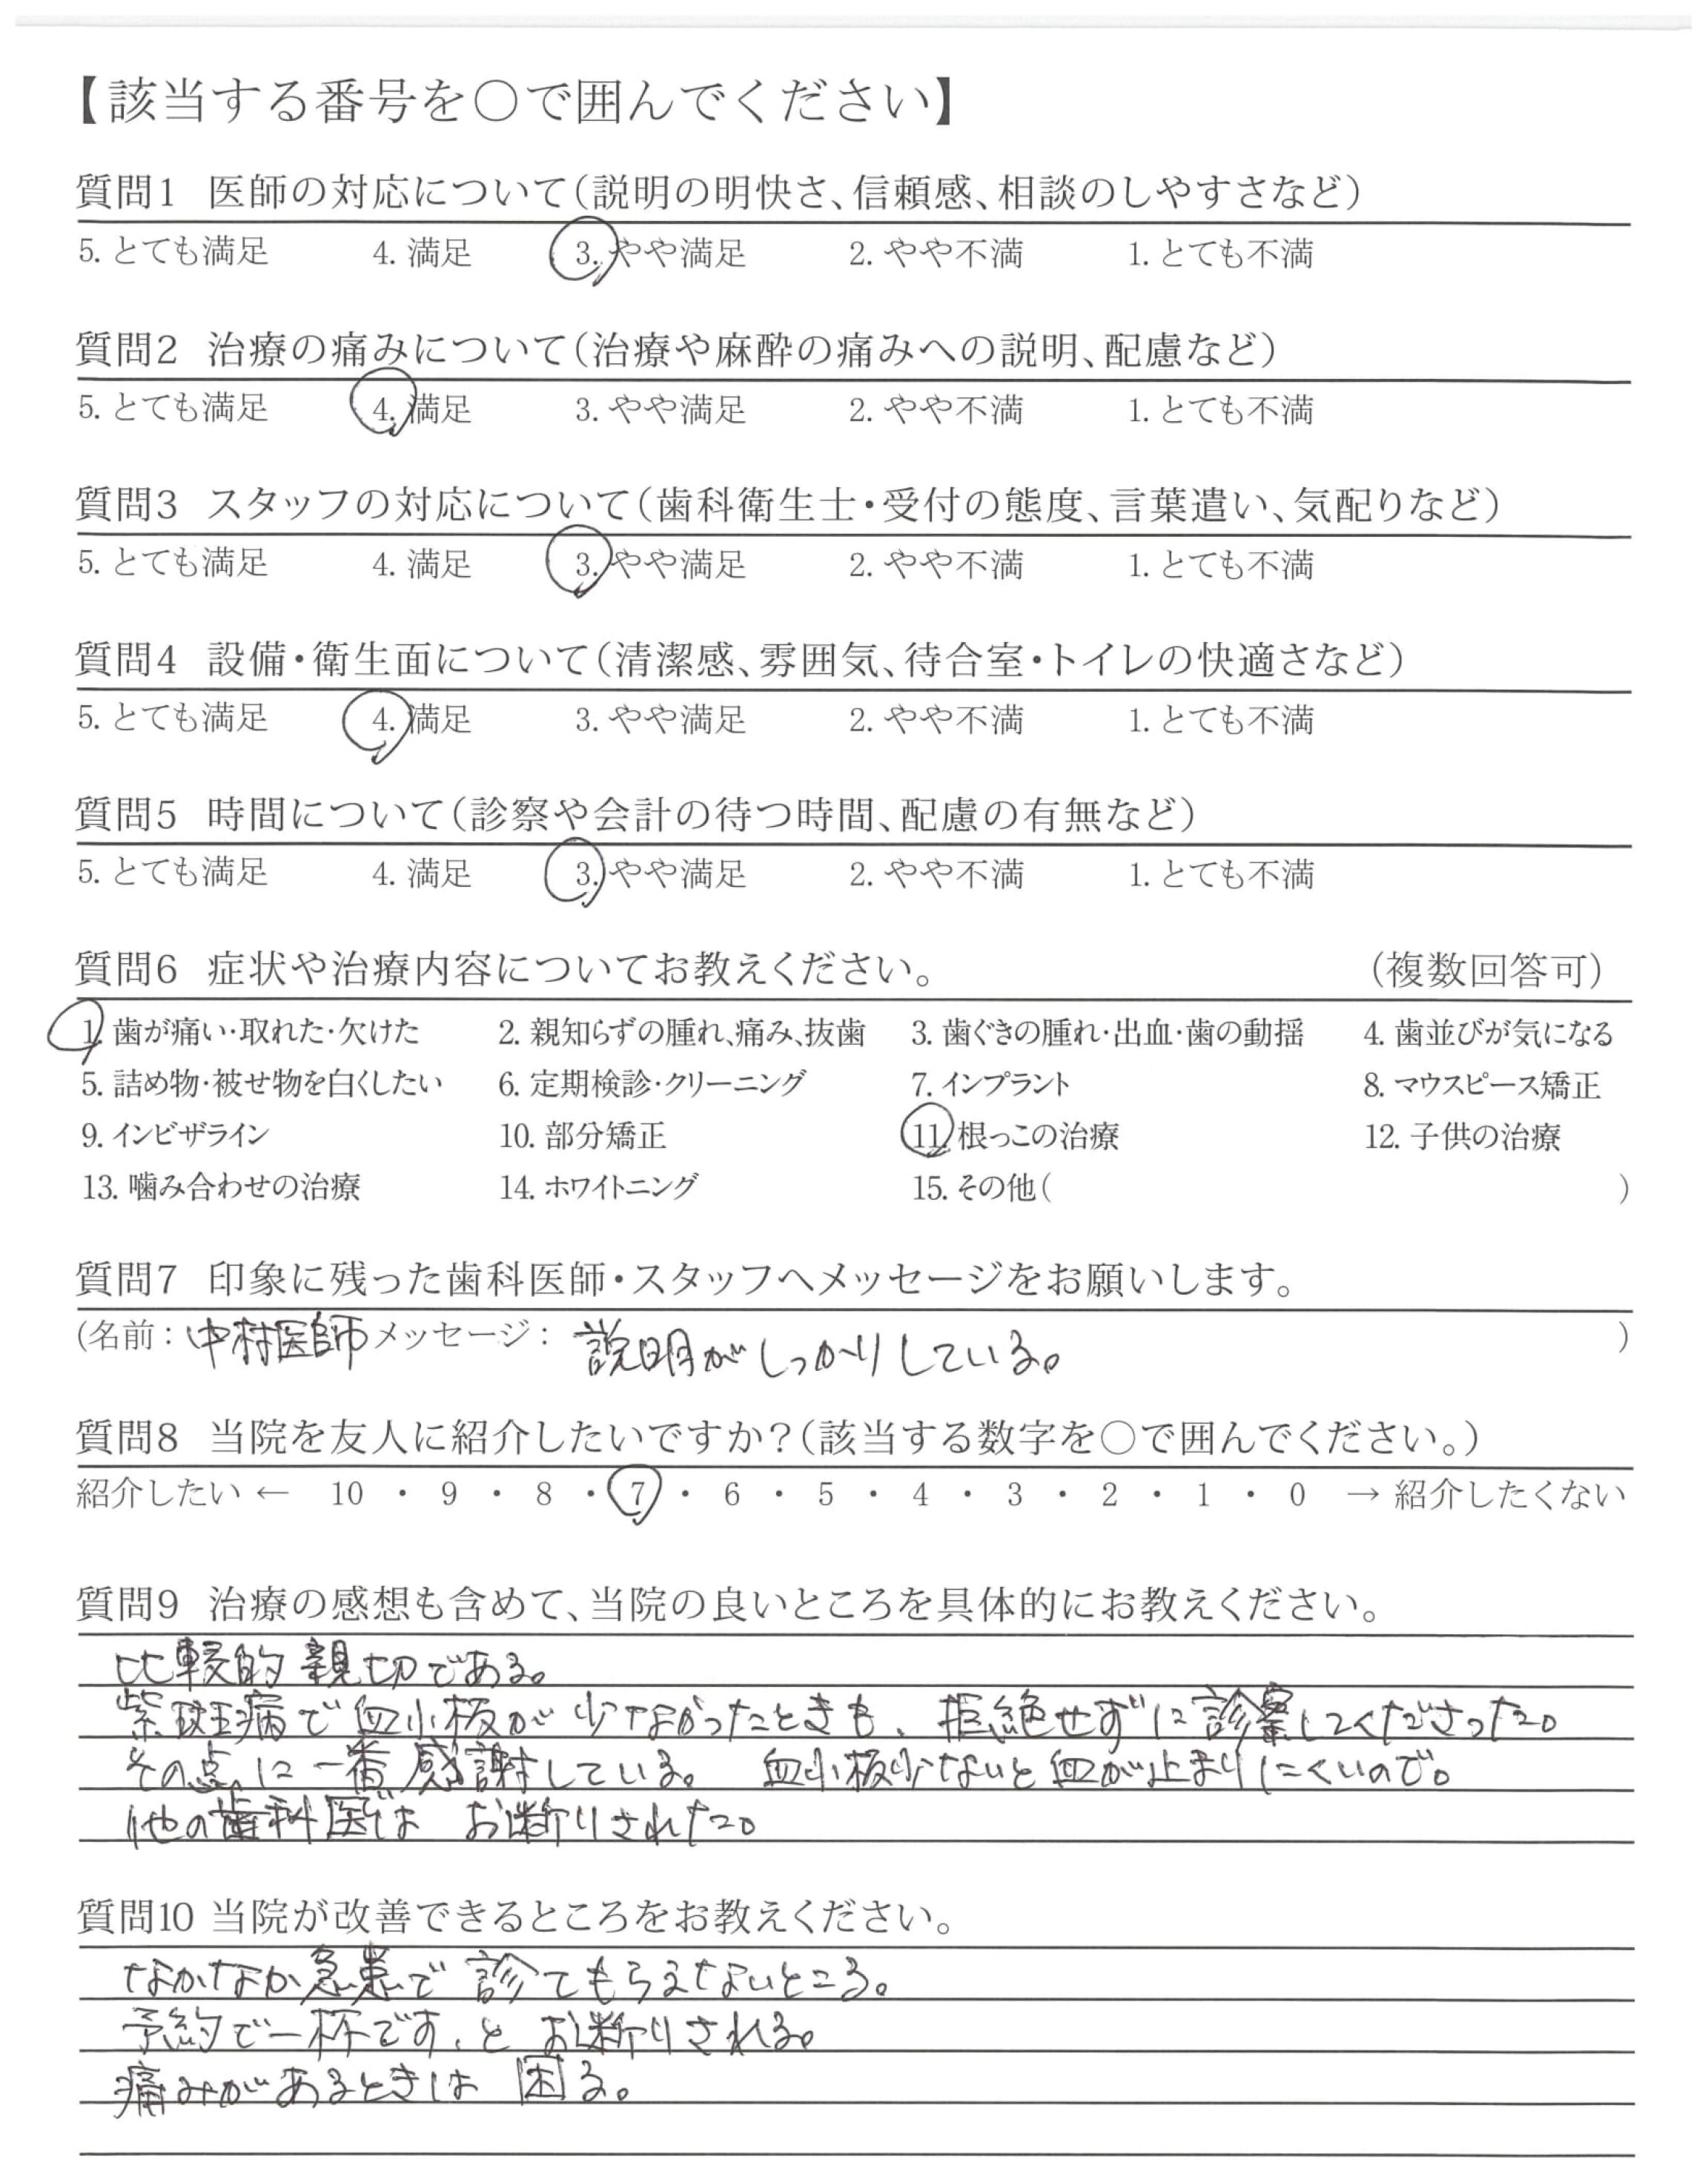 【該当する番号を○で囲んでください】
質問1 医師の対応について(説明の明快さ、信頼感、相談のしやすさなど)
5. とても満足 4. 満足 3. やや満足 2. やや不満 1. とても不満
質問2 治療の痛みについて(治療や麻酔の痛みへの説明、配慮など)
5. とても満足 4. 満足 3. やや満足 2. やや不満 1. とても不満
質問3 スタッフの対応について(歯科衛生士・受付の態度、言葉遣い、気配りなど)
5. とても満足 4. 満足 3. やや満足 2. やや不満 1. とても不満
質問4 設備・衛生面について(清潔感、雰囲気、待合室・トイレの快適さなど)
5. とても満足 4. 満足 3. やや満足 2. やや不満 1. とても不満
質問5 時間について(診察や会計の待つ時間、配慮の有無など)
5. とても満足 4. 満足 3. やや満足 2. やや不満 1. とても不満
質問6 症状や治療内容についてお教えください。 (複数回答可)
1. 歯が痛い・取れた・欠けた 2. 親知らずの腫れ、痛み、抜歯 3. 歯ぐきの腫れ・出血・歯の動揺 4. 歯並びが気になる
5. 詰め物・被せ物を白くしたい 6. 定期検診・クリーニング 7. インプラント 8. マウスピース矯正
9. インビザライン 10. 部分矯正 11. 根っこの治療 12. 子供の治療
13. 噛み合わせの治療 14. ホワイトニング 15. その他( )
質問7 印象に残った歯科医師・スタッフへメッセージをお願いします。
(名前：中村医師 メッセージ：説明がしっかりしている。 )
質問8 当院を友人に紹介したいですか？(該当する数字を○で囲んでください。)
紹介したい ← 10 ・ 9 ・ 8 ・ 7 ・ 6 ・ 5 ・ 4 ・ 3 ・ 2 ・ 1 ・ 0 → 紹介したくない
質問9 治療の感想も含めて、当院の良いところを具体的にお教えください。
比較的親切である。
紫斑病で血小板が少なかったときも、拒絶せずに診察してくださった。
その点に一番感謝している。 血小板少ないと血が止まりにくいので。
他の歯科医では お断りされた。
質問10 当院が改善できるところをお教えください。
なかなか急患で診てもらえないところ。
予約で一杯です、と お断りされる。
痛みがあるときは 困る。